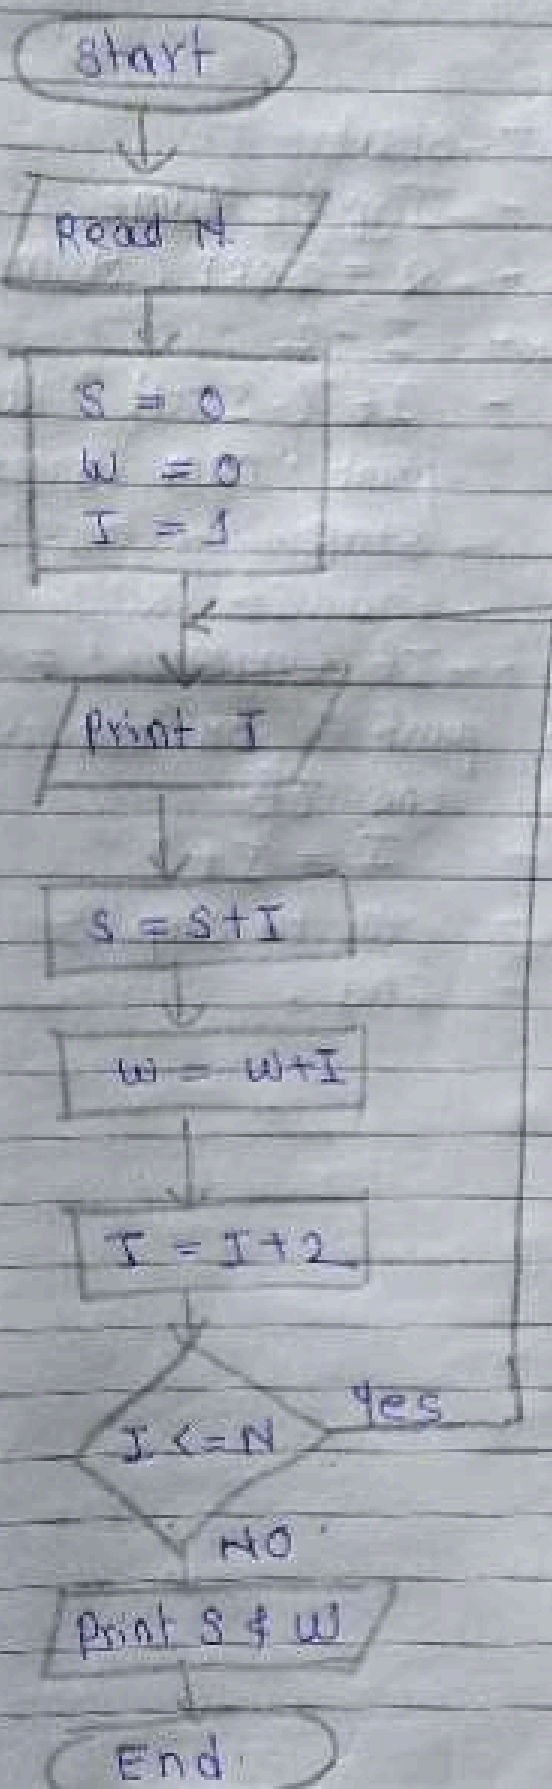 Start
Read N
S = 0
W = 0
I = 1
Print I
S = S+I
W = W+I
I = I+2
I <= N
Yes
NO
Print S & W
End